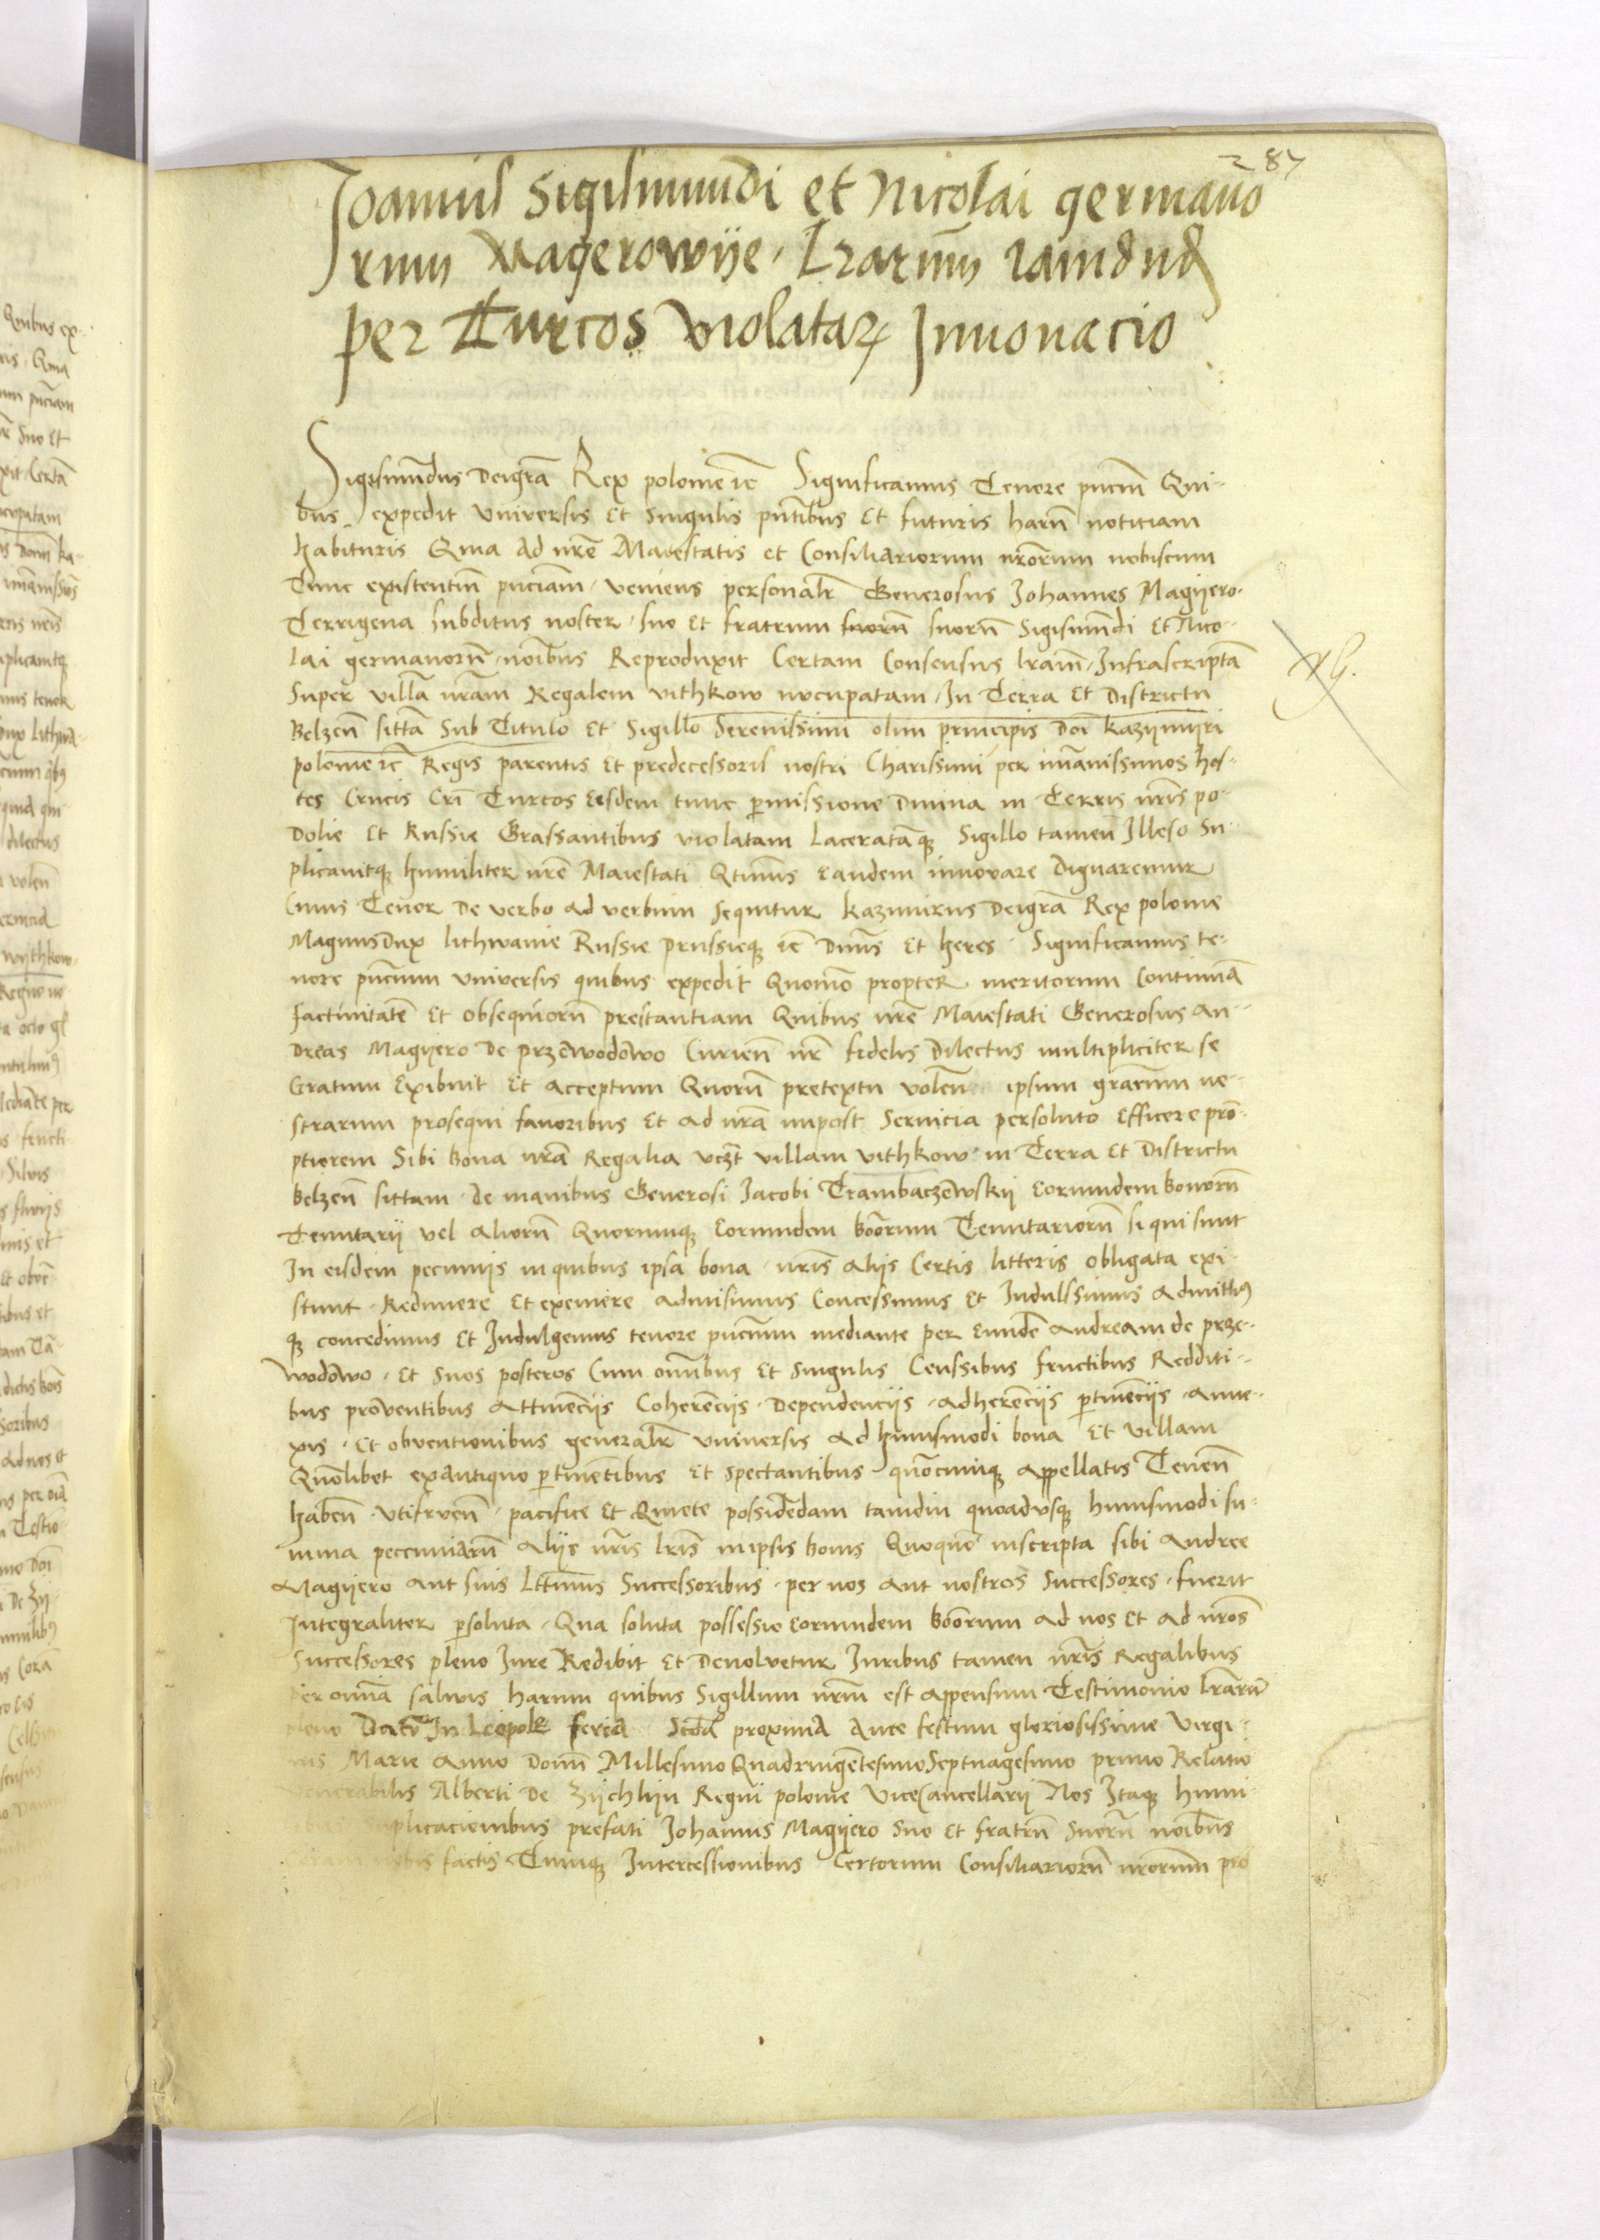 287
Joannis Sigismundi et Nicolai germano
rum Magerowye. Lrarum iamdud
per Turcos violatar Innouacio
Sigismundus Deigra Rex polonie etc Significamus Tenore pncm Qui-
bus expedit Vniversis Et Singulis pntibus Et futuris harum notitiam
habituris Quia Ad nre Maiestatis et Consiliariorum nrorum nobiscum
Tunc existentium pnciam. veniens personalr Generosus Johannes Magyero.
Terrigena subditus noster. suo Et fratrum suorum suorum Sigismundi Et Nico-
lai germanorum. noibus Reproduxit Certam Consensus lram. Infrascriptam
Super villa nram Regalem vithkow nvcupatam. In Terra Et Districtu
Belzen sittam Sub Titulo Et Sigillo Serenissimi olim principis Doi Kazymyri
polonie etc Regis parentis Et predecessoris nostri Charissimi per imanissimos hos-
tes Crucis Cri Turcos eisdem tunc permissione Diuina in Terris nris po-
Dolie Et Russie Grassantibus violatam laceratamque Sigillo tamen Illeso Su-
plicauitque humiliter nre Maiestati Qtinus Eandem innovare Dignaremur
Cuius Tenor De verbo Ad verbum sequitur Kazimirus Deigra Rex polonie
MagnusDux lithwanie Russie prussieque etc Dnus Et heres. Significamus te-
nore pncium vniversis quibus expedit Quomo propter meritorum Continua
factiuitatem Et obsequiorum prestantiam Quibus nre Maiestati Generosus An-
Dreas Magyero De przewodowo Curien nr fidelis Dilectus multipliciter se
Gratum Exibuit Et Acceptum Quorum pretextu volen ipsum gratiarum no-
strarum prosequi fauoribus Et Ad nra inpost Seruicia persoluto Efficere pro-
ptiorem Sibi bona nra Regalia vczt villam vithkow in Terra Et Districtu
belzen sittam. de manibus Generosi Jacobi Trambaczewsky Eorumdem bonorum
Tenutarii vel Aliorum Quorumque Eorumdem bonorum Tenutariorum si qui sunt
In eisdem pecuniis in quibus ipsa bona. nris Aliis Certis litteris obligata exi-
stunt. Redimere Et exemere Admisimus Concessimus Et Indulssimus Admittimus
que concedimus Et Indulgemus tenore pncium mediante per Eundem Andream de prze-
wodowo. Et Suos posteros Cum omnibus Et Singulis Censsibus fructibus Redditi-
bus proventibus Attinenciis Coherenciis. Dependenciis. Adherenciis pertinenciis. Anne-
xis. Et obventionibus generalr vniversis Ad huiusmodi bona Et villam
Quomolibet exantiquo pertinentibus Et spectantibus quocumque Appellatis Tenen
haben. vtifruen. pacifice Et Quiete possidendam tamdiu quoadvsque huiusmodi su-
mma peccuniarum Aliis nris lris in ipsis bonis Quoquo inscripta sibi Andree
Magyero Aut suis lttimis Successoribus. per nos Aut nostros Successores. fuerit
Integraliter persoluta. Qua soluta possessio Eorumdem bonorum Ad nos Et Ad nros
Successores pleno Jure Redibit Et Devolvetur Juribus tamen nris Regalibus
per omnia salvis harum quibus Sigillum nrm est Appensum Testimonio lrarum
pleno Datum In Leopoli feria Scda proxima Ante festum gloriosissime Virgi-
nis Marie Anno Domini Millesimo Quadringentesimo Septuagesimo primo Relatio
venerabilis Alberti De Zychlyn Regni polonie ViceCancellarii Nos Itaque humi
Suplicacionibus prefati Johannis Magyero Suo Et fratrum Suorum noibus
factis Tumque Intercessionibus Certorum Consiliariorum nrorum pro